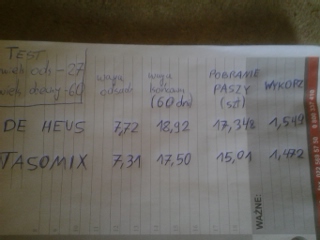 TEST
27
60
waga odsad.
waga końcowa (60 dni)
POBRANIE PASZY (szt)
WYKORZ
DE HEUS 7,72 18,92 17,348 1,549
TASOMIX 7,31 17,50 15,01 1,472
WAŻNE: